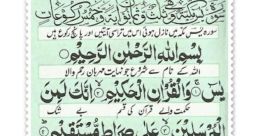 وثمانون آية وخمس ركوعات
سورہ یٰس مکہ میں نازل ہوئی اس میں تراسی آیتیں اور پانچ رکوع ہیں
بِسْمِ اللّٰهِ الرَّحْمٰنِ الرَّحِيْمِ
اللہ کے نام سے شروع جو نہایت مہربان رحم والا
يٰسٓ وَالْقُرْاٰنِ الْحَكِيْمِ اِنَّكَ لَمِنَ
حکمت والے قرآن کی قسم بے شک
الْمُرْسَلِيْنَ عَلٰى صِرَاطٍ مُّسْتَقِيْمٍ